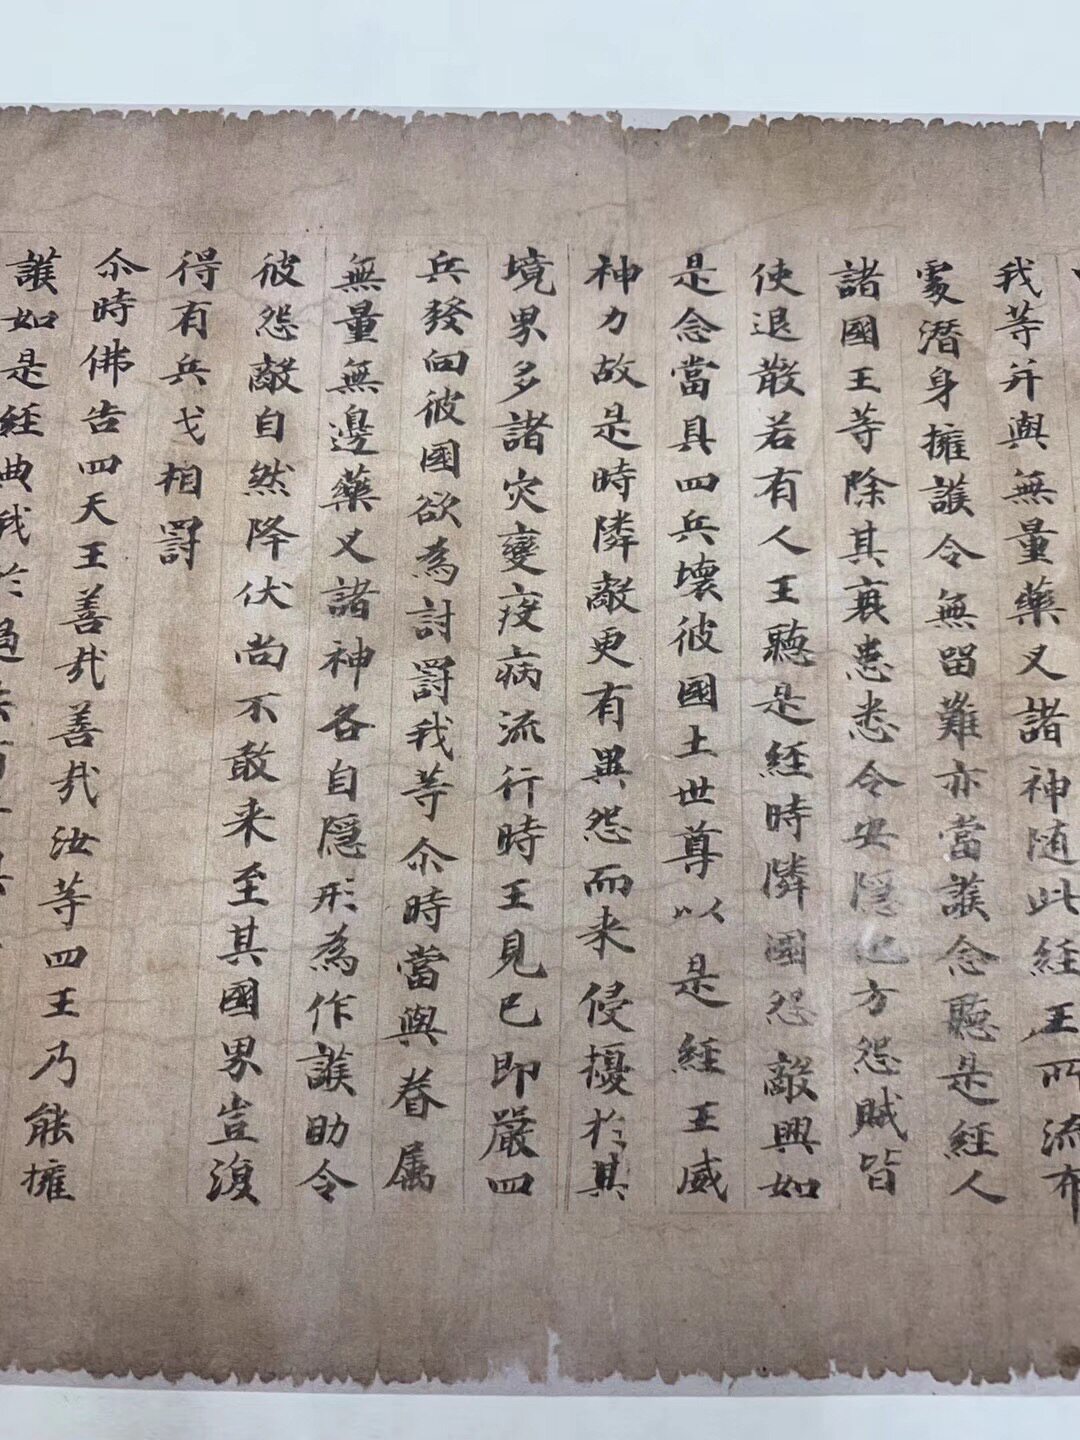 我等并與無量藥叉諸神随此經王所流布
處潛身擁護令無留難亦當護念聽是經人
諸國王等除其衰患悉令安隱他方怨賊皆
使退散若有人王聽是經時隣國怨敵興如
是念當具四兵壞彼國土世尊以是經王威
神力故是時隣敵更有異怨而来侵擾於其
境界多諸灾變疫病流行時王見已即嚴四
兵發向彼國欲為討罸我等尒時當與眷属
無量無邊藥叉諸神各自隱形為作護助令
彼怨敵自然降伏尚不敢来至其國界豈復
得有兵戈相罸
尒時佛告四天王善哉善哉汝等四王乃能擁
護如是經典我於過去百千